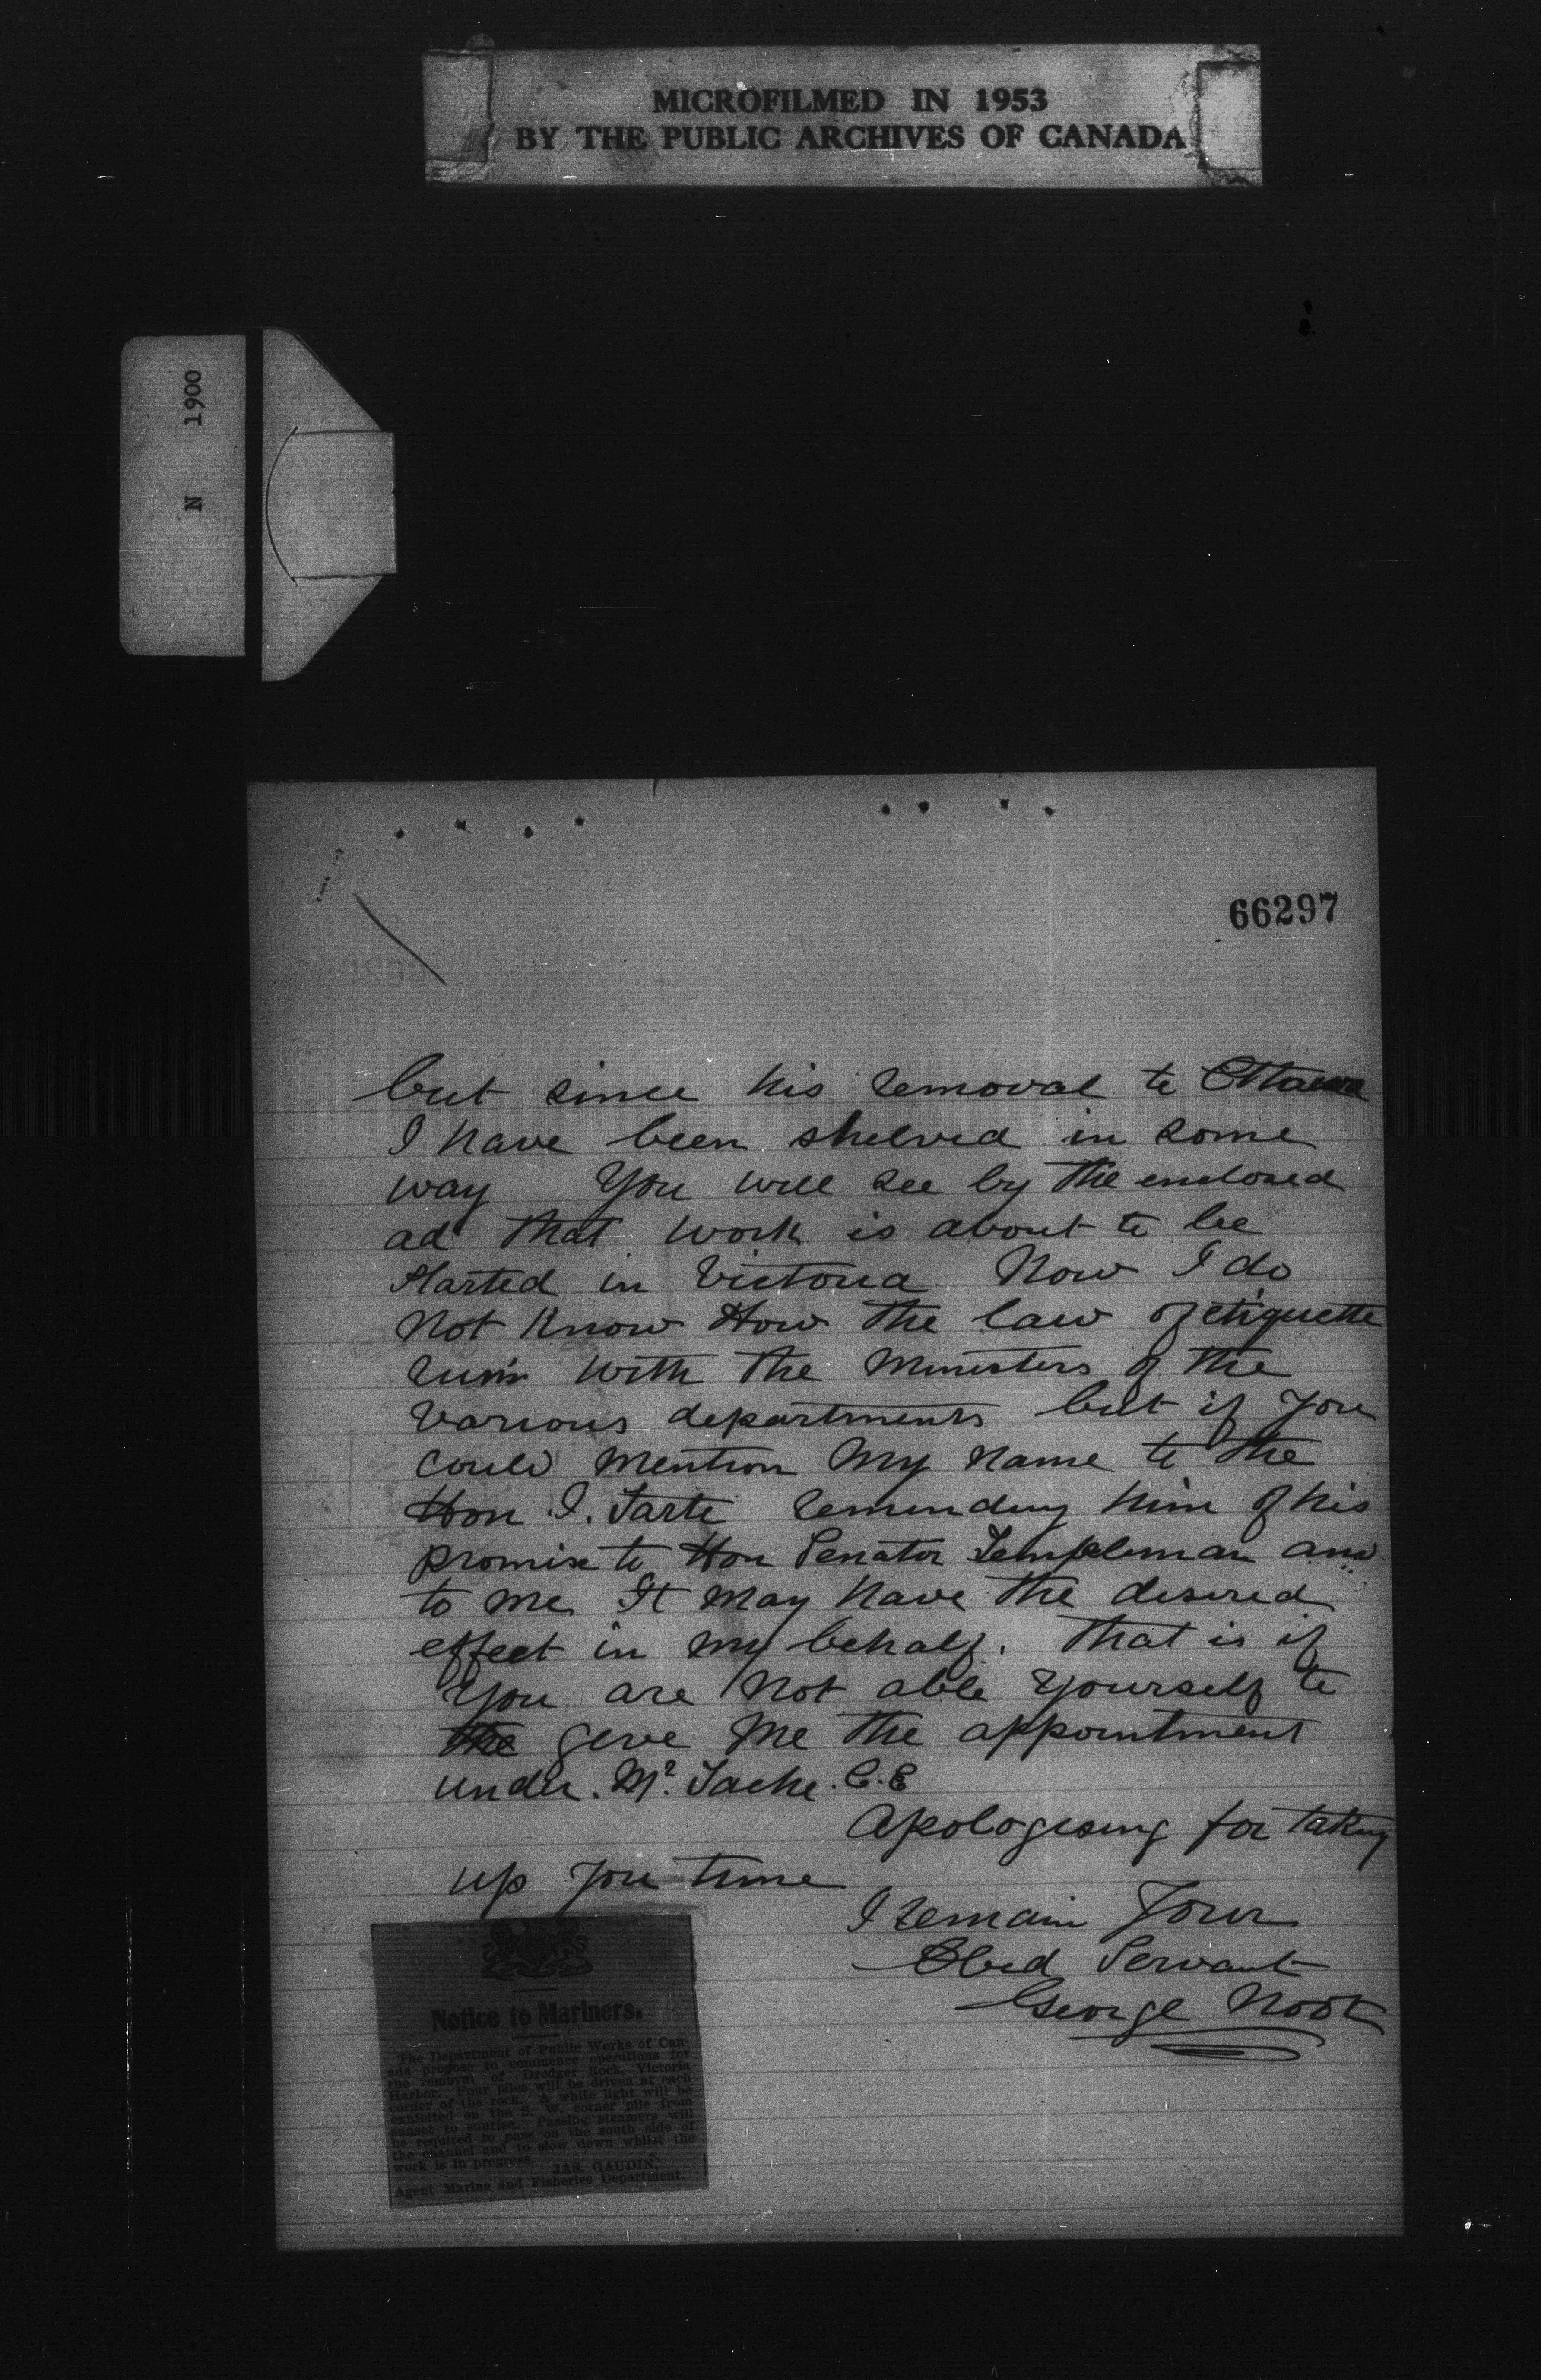 MICROFILMED IN 1953
BY THE PUBLIC ARCHIVES OF CANADA
N 1900
66297
but since his removal to Ottawa
I have been shelved in some
way You will see by the enclosed
ad that work is about to be
started in Victoria Now I do
not know How the law of etiquette
runs with the Ministers of the
various departments but if you
could mention My name to the
Hon I. Tarte reminding him of his
promise to Hon Senator Templeman and
to me It may have the desired
effect in my behalf. That is if
you are not able yourself to
the give me the appointment
under Mr. Tache. C.E
Apologising for taking
up you time
I remain Your
Obed Servant
George
Notice to Mariners.
The Department of Public Works of Can-
ada propose to commence operations for
the removal of Dredger Rock, Victoria
Harbor. Four piles will be driven at each
corner of the rock. A white light will be
exhibited on the S. W. corner pile from
sunset to sunrise. Passing steamers will
be required to pass on the south side of
the channel and to slow down whilst the
work is in progress.
JAS. GAUDIN,
Agent Marine and Fisheries Department.